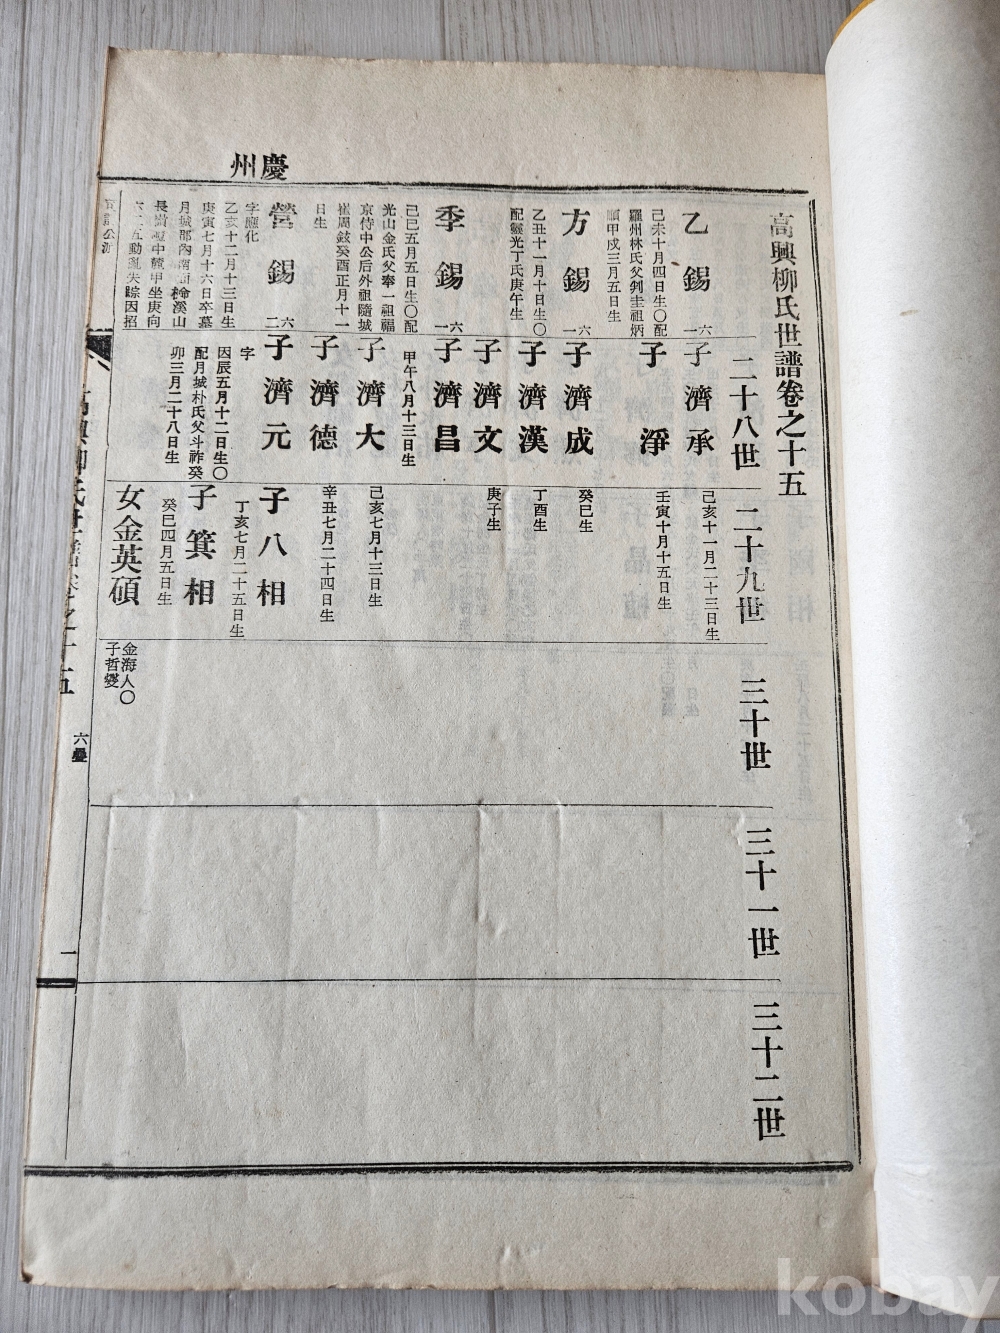 慶州
高興柳氏世譜卷之十五
二十八世
二十九世
三十世
三十一世
三十二世
乙錫
六一
己未十月四日生〇配
羅州林氏父判圭祖炳
甲戌三月五日生
子濟承
己亥十一月二十三日生
子淨
壬寅十月十五日生
方錫
六一
乙丑十一月十日生〇
配靈光丁氏庚午生
子濟成
癸巳生
子濟漢
丁酉生
子濟文
庚子生
季錫
六一
己巳五月五日生〇配
光山金氏父奉一祖福
京侍中公后外祖隨城
崔周鉉癸酉正月十一
日生
子濟昌
甲午八月十三日生
子濟大
己亥七月十三日生
子濟德
辛丑七月二十四日生
營錫
六二
字應化
乙亥十二月十三日生
庚寅七月十六日卒墓
月城郡內南面 檜溪山
長嶝 中麓甲坐庚向
六二五動亂失踪因招
子濟元
字
丙辰五月十二日生〇
配月城朴氏父斗祚癸
卯三月二十八日生
子八相
丁亥七月二十五日生
子箕相
癸巳四月五日生
女金英碩
金海人〇
子哲燮
高興柳氏世譜卷之十五
六疊
一
kobay